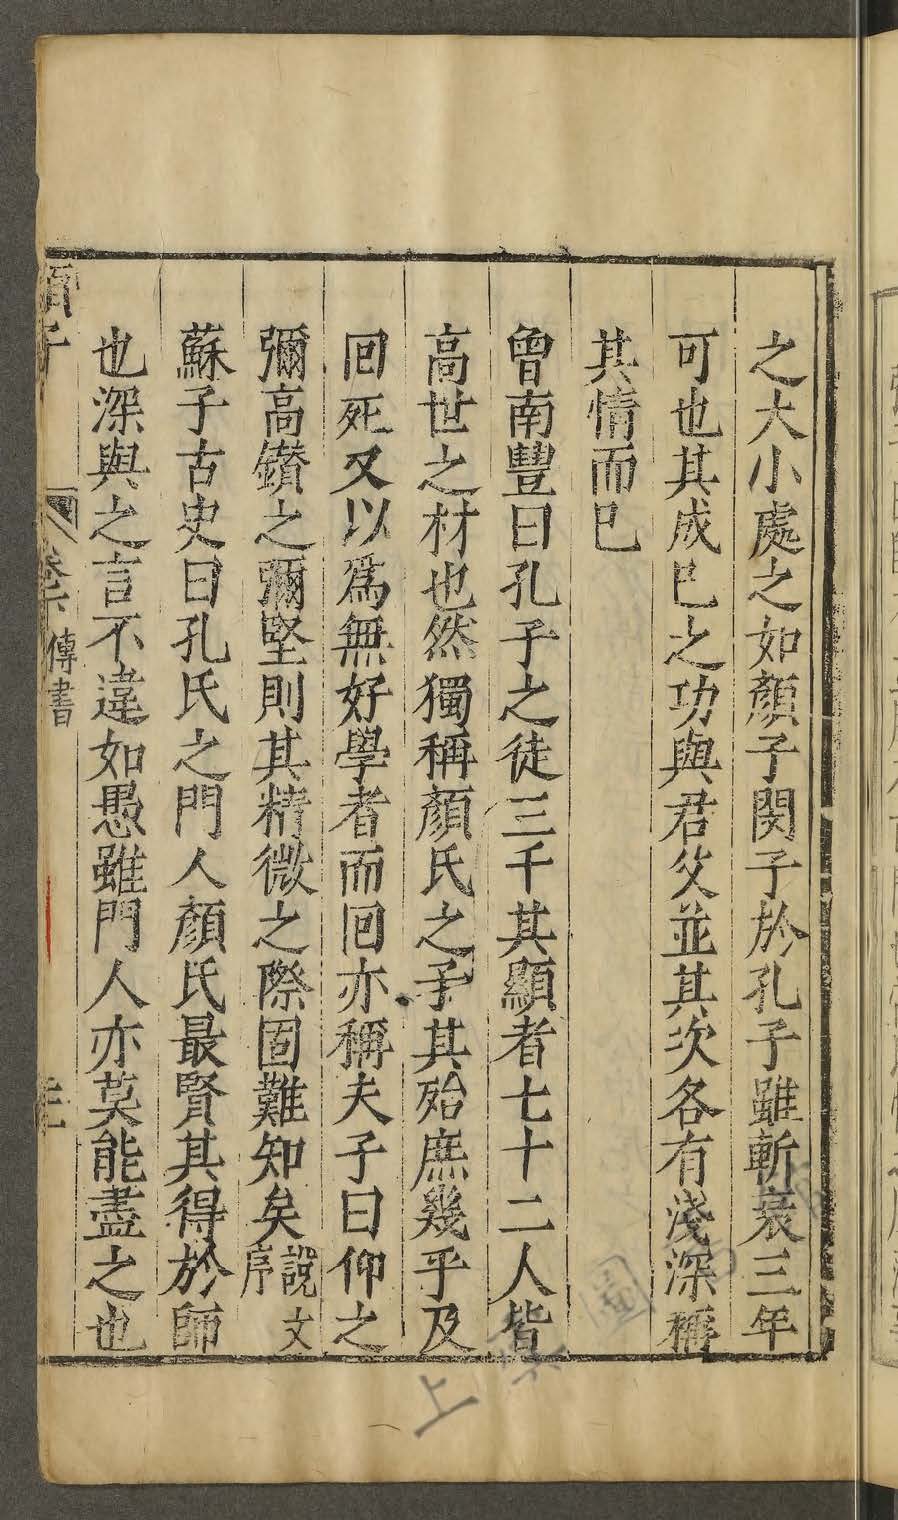 之大小處之如顏子閔子於孔子雖斬衰三年
可也其成已之功與君父並其次各有淺深稱
其情而已
曾南豐曰孔子之徒三千其顯者七十二人皆
高世之材也然獨稱顏氏之子其殆庶幾乎及
回死又以爲無好學者而回亦稱夫子曰仰之
彌高鑚之彌堅則其精微之際固難知矣說文序
蘇子古史曰孔氏之門人顏氏最賢其得於師
也深與之言不違如愚雖門人亦莫能盡之也
傳書